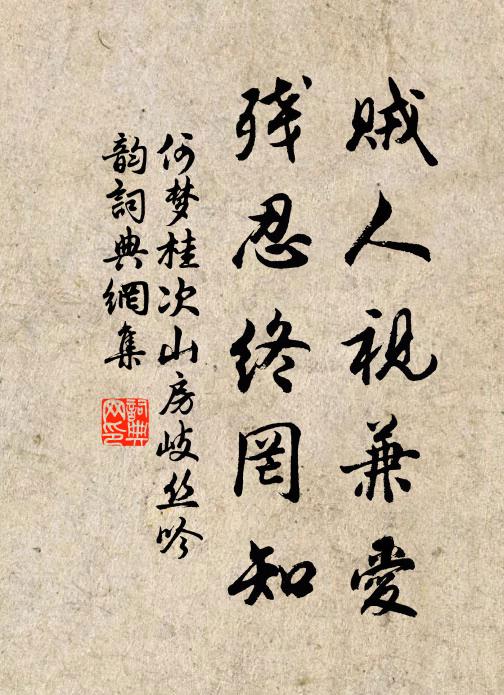 贼人视兼爱
残忍终罔知
何梦桂次山房歧丝吟
韵词典网集
词典网印